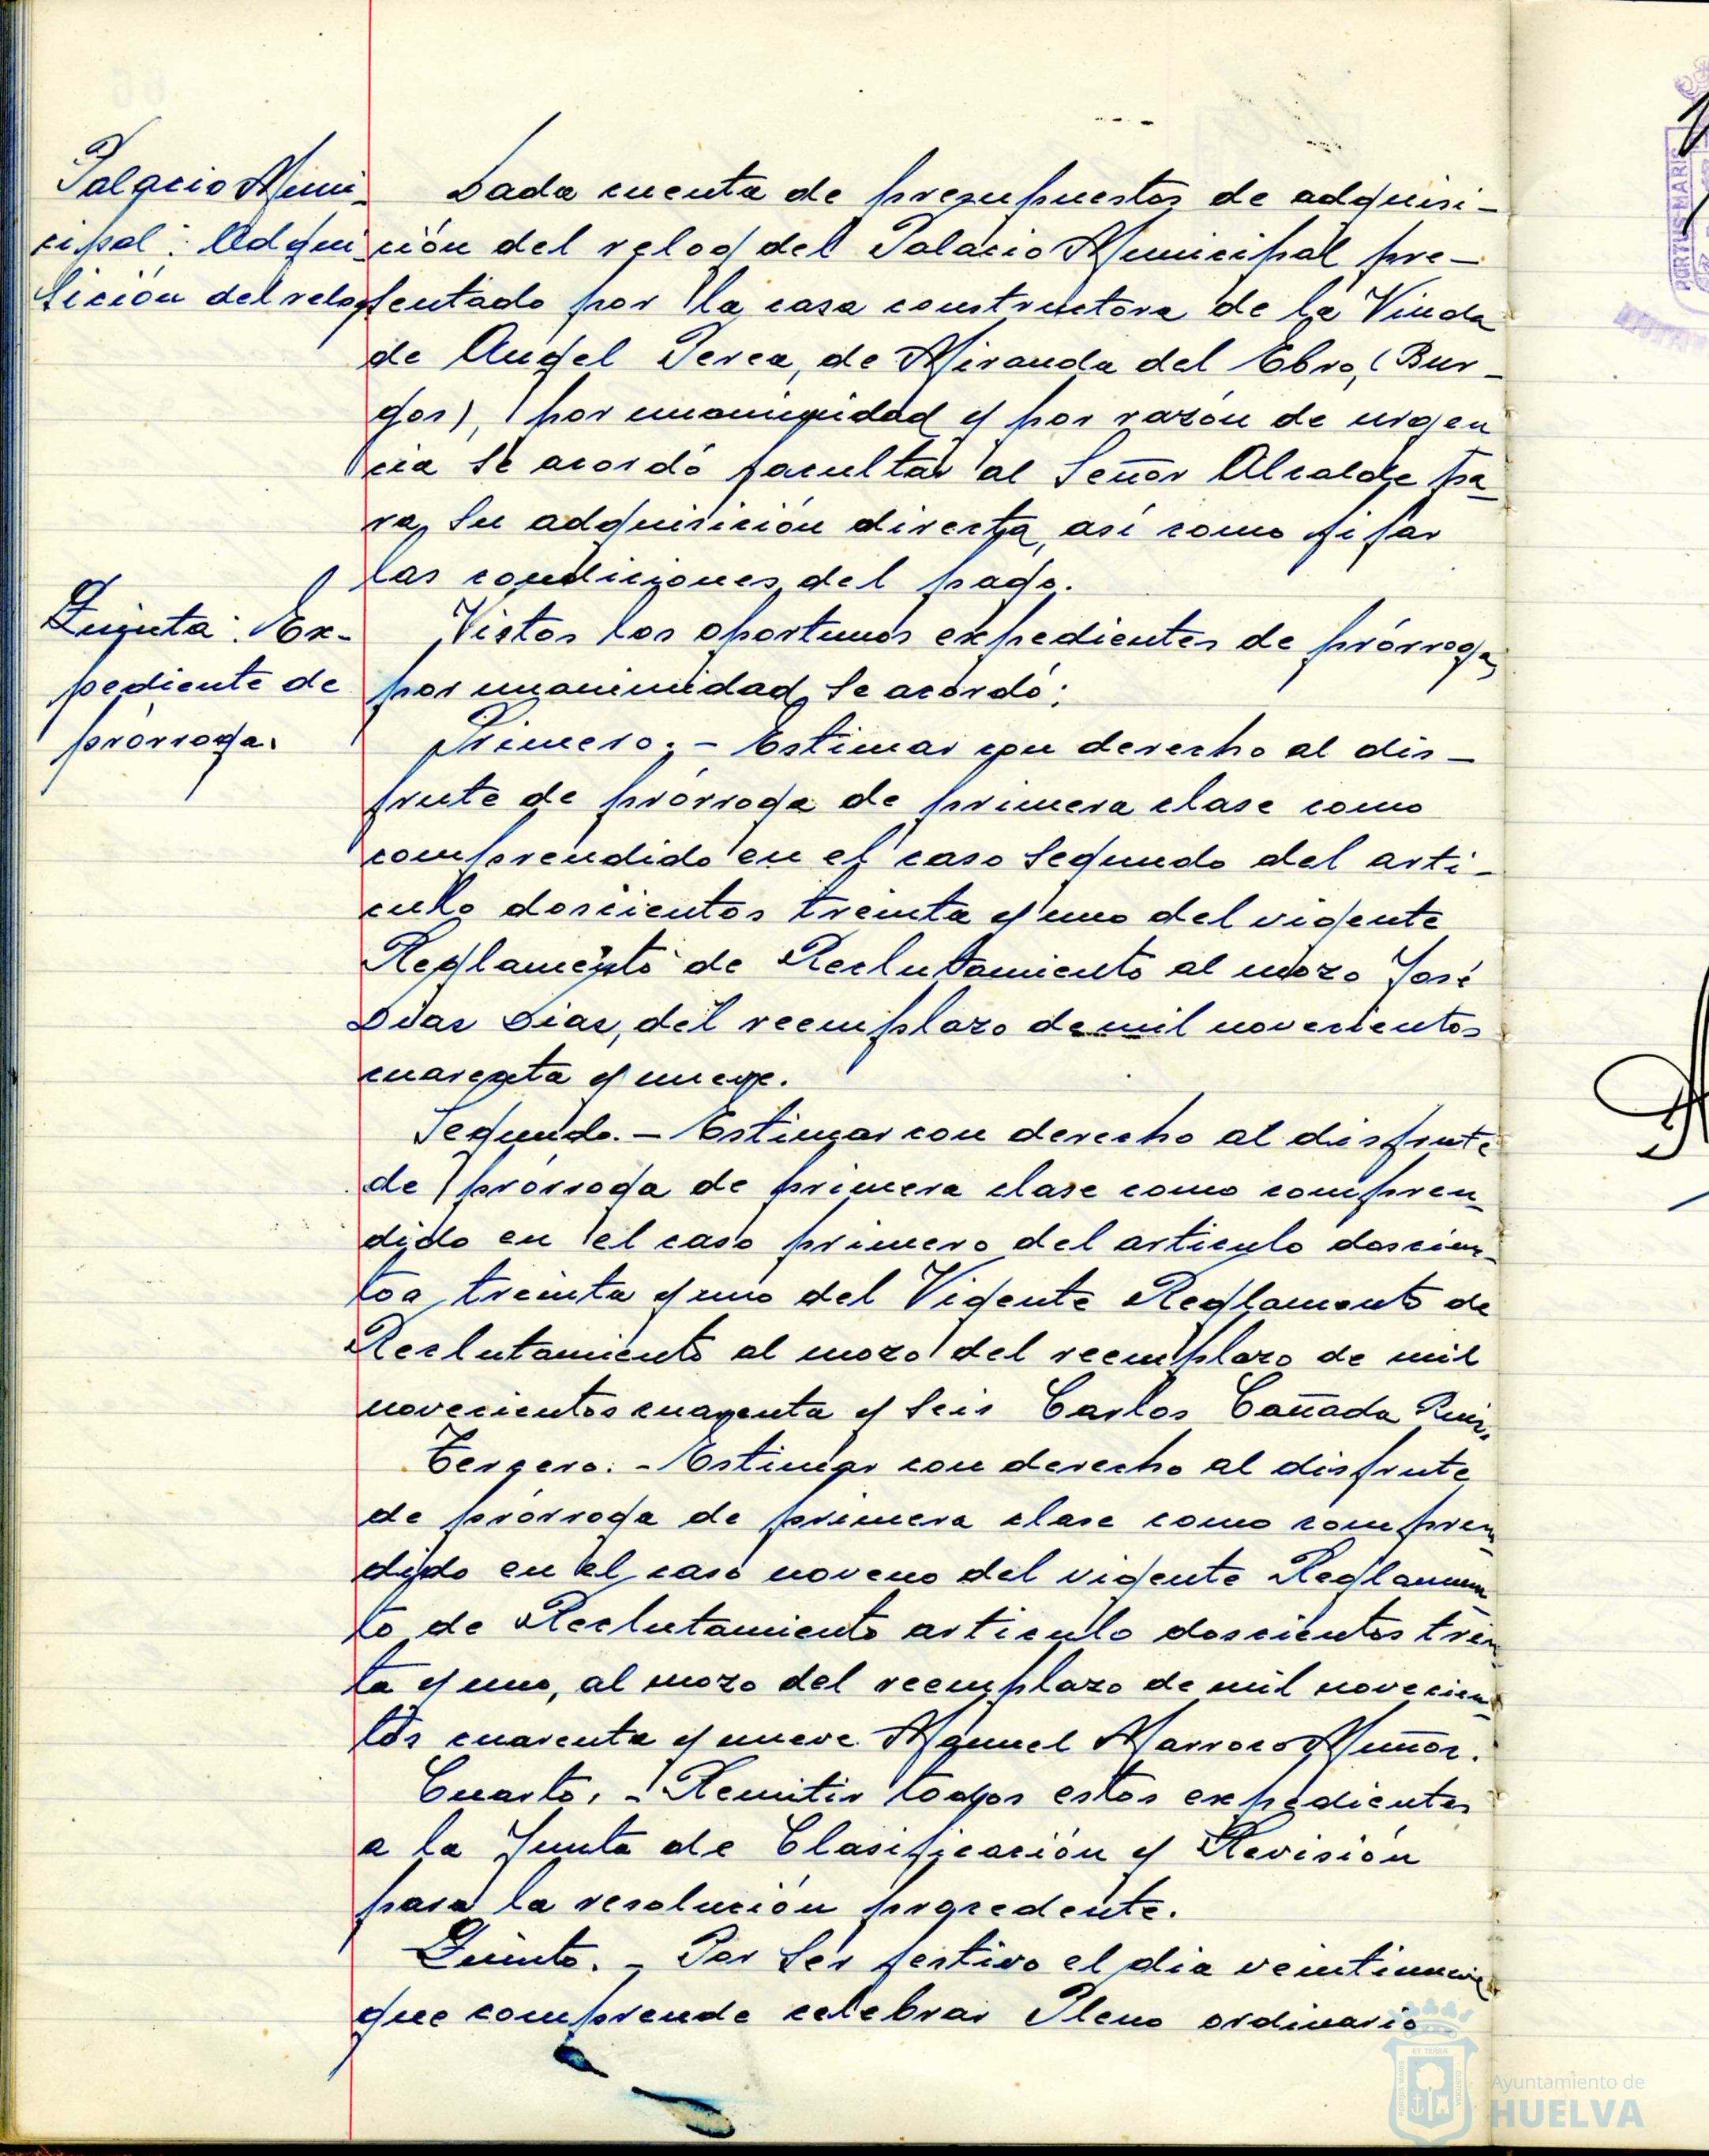 Palacio Muni-
cipal: Adqui-
sición del reloj
Dada cuenta de presupuestos de adquisi-
ción del reloj del Palacio Municipal pre-
sentado por la casa constructora de la Viuda
de Angel Perea, de Miranda del Ebro, (Bur-
gos), por unanimidad y por razón de urgen
cia se acordó facultar al Señor Alcalde pa-
ra su adquisición directa, así como fijar
las condiciones del pago.
Quinta: Ex-
pediente de
prórroga.
Vistos los oportunos expedientes de prórroga,
por unanimidad, se acordó:
Primero: - Estimar con derecho al dis-
frute de prórroga de primera clase como
comprendido en el caso segundo del arti-
culo doscientos treinta y uno del vigente
Reglamento de Reclutamiento al mozo José
Díaz Díaz, del reemplazo de mil novecientos
cuarenta y nueve.
Segundo. - Estimar con derecho al disfrute
de prórroga de primera clase como compren-
dido en el caso primero del articulo doscien-
tos treinta y uno del Vigente Reglamento de
Reclutamiento al mozo del reemplazo de mil
novecientos cuarenta y seis Carlos Cañada Ruiz.
Tercero. - Estimar con derecho al disfrute
de prórroga de primera clase como compren-
dido en el caso noveno del vigente Reglamen
to de Reclutamiento articulo doscientos trein
ta y uno, al mozo del reemplazo de mil novecien-
tos cuarenta y nueve Manuel Marroco Muñoz.
Cuarto. - Remitir todos estos expedientes
a la Junta de Clasificación y Revisión
para la resolución procedente.
Quinto. - Por ser festivo el día veintinueve
que comprende celebrar Pleno ordinario
PORTUS MARIS
Ayuntamiento de
HUELVA